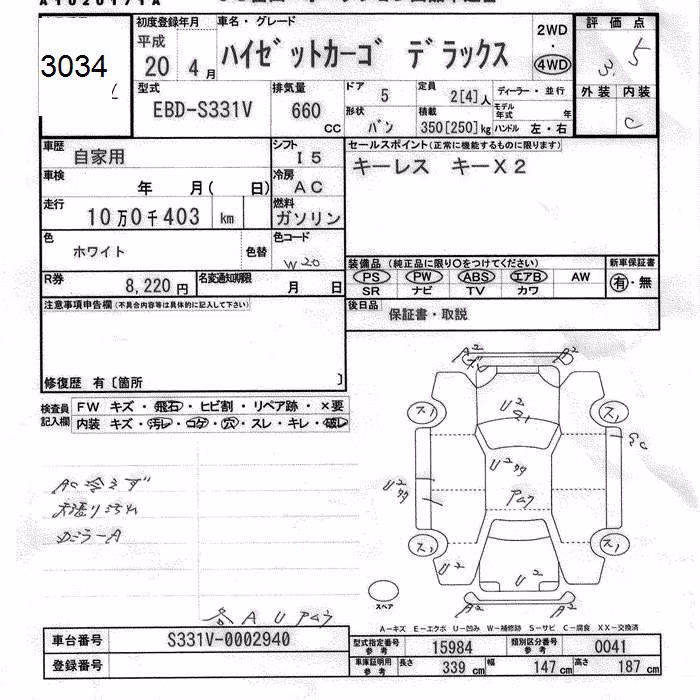 初度登録年月 車名・グレード 2WD 評価点
平成 ハイゼットカーゴ デラックス ・ 3.5
3034 20 4月 4WD
型式 排気量 ドア 5 定員 2[4]人 ディーラー・並行 外装 内装
EBD-S331V 660 CC 形状 バン 積載 350[250]kg モデル年式 年 C
ハンドル 左・右
車歴 自家用 シフト I5 セールスポイント(正常に機能するものに限ります)
車検 年 月( 日) 冷房 AC キーレス キーX2
走行 10万0千403 km 燃料 ガソリン
色 ホワイト 色替 色コード W20
装備品(純正品に限り○をつけてください) 新車保証書
R券 8,220円 名変通知期限 月 日 PS PW ABS エアB AW 有・無
SR ナビ TV カワ
注意事項申告欄(不具合内容等は具体的に記入して下さい) 後日品 保証書・取説
修復歴 有〔箇所 〕
検査員記入欄 FW キズ・飛石・ヒビ割・リペア跡・×要
内装 キズ・汚レ・コゲ・穴・スレ・キレ・破レ
A2 A2
U2
ス1 ス1
U2
U2
ス1 ス1
U2 U2
AC冷えず
スペア A2 A2
各 A U
A-キズ E-エクボ U-凹み W-補修跡 S-サビ C-腐食 XX-交換済
車台番号 S331V-0002940 型式指定番号 参考 15984 類別区分番号 参考 0041
登録番号 車庫証明用 参考 長さ 339cm 幅 147cm 高さ 187cm